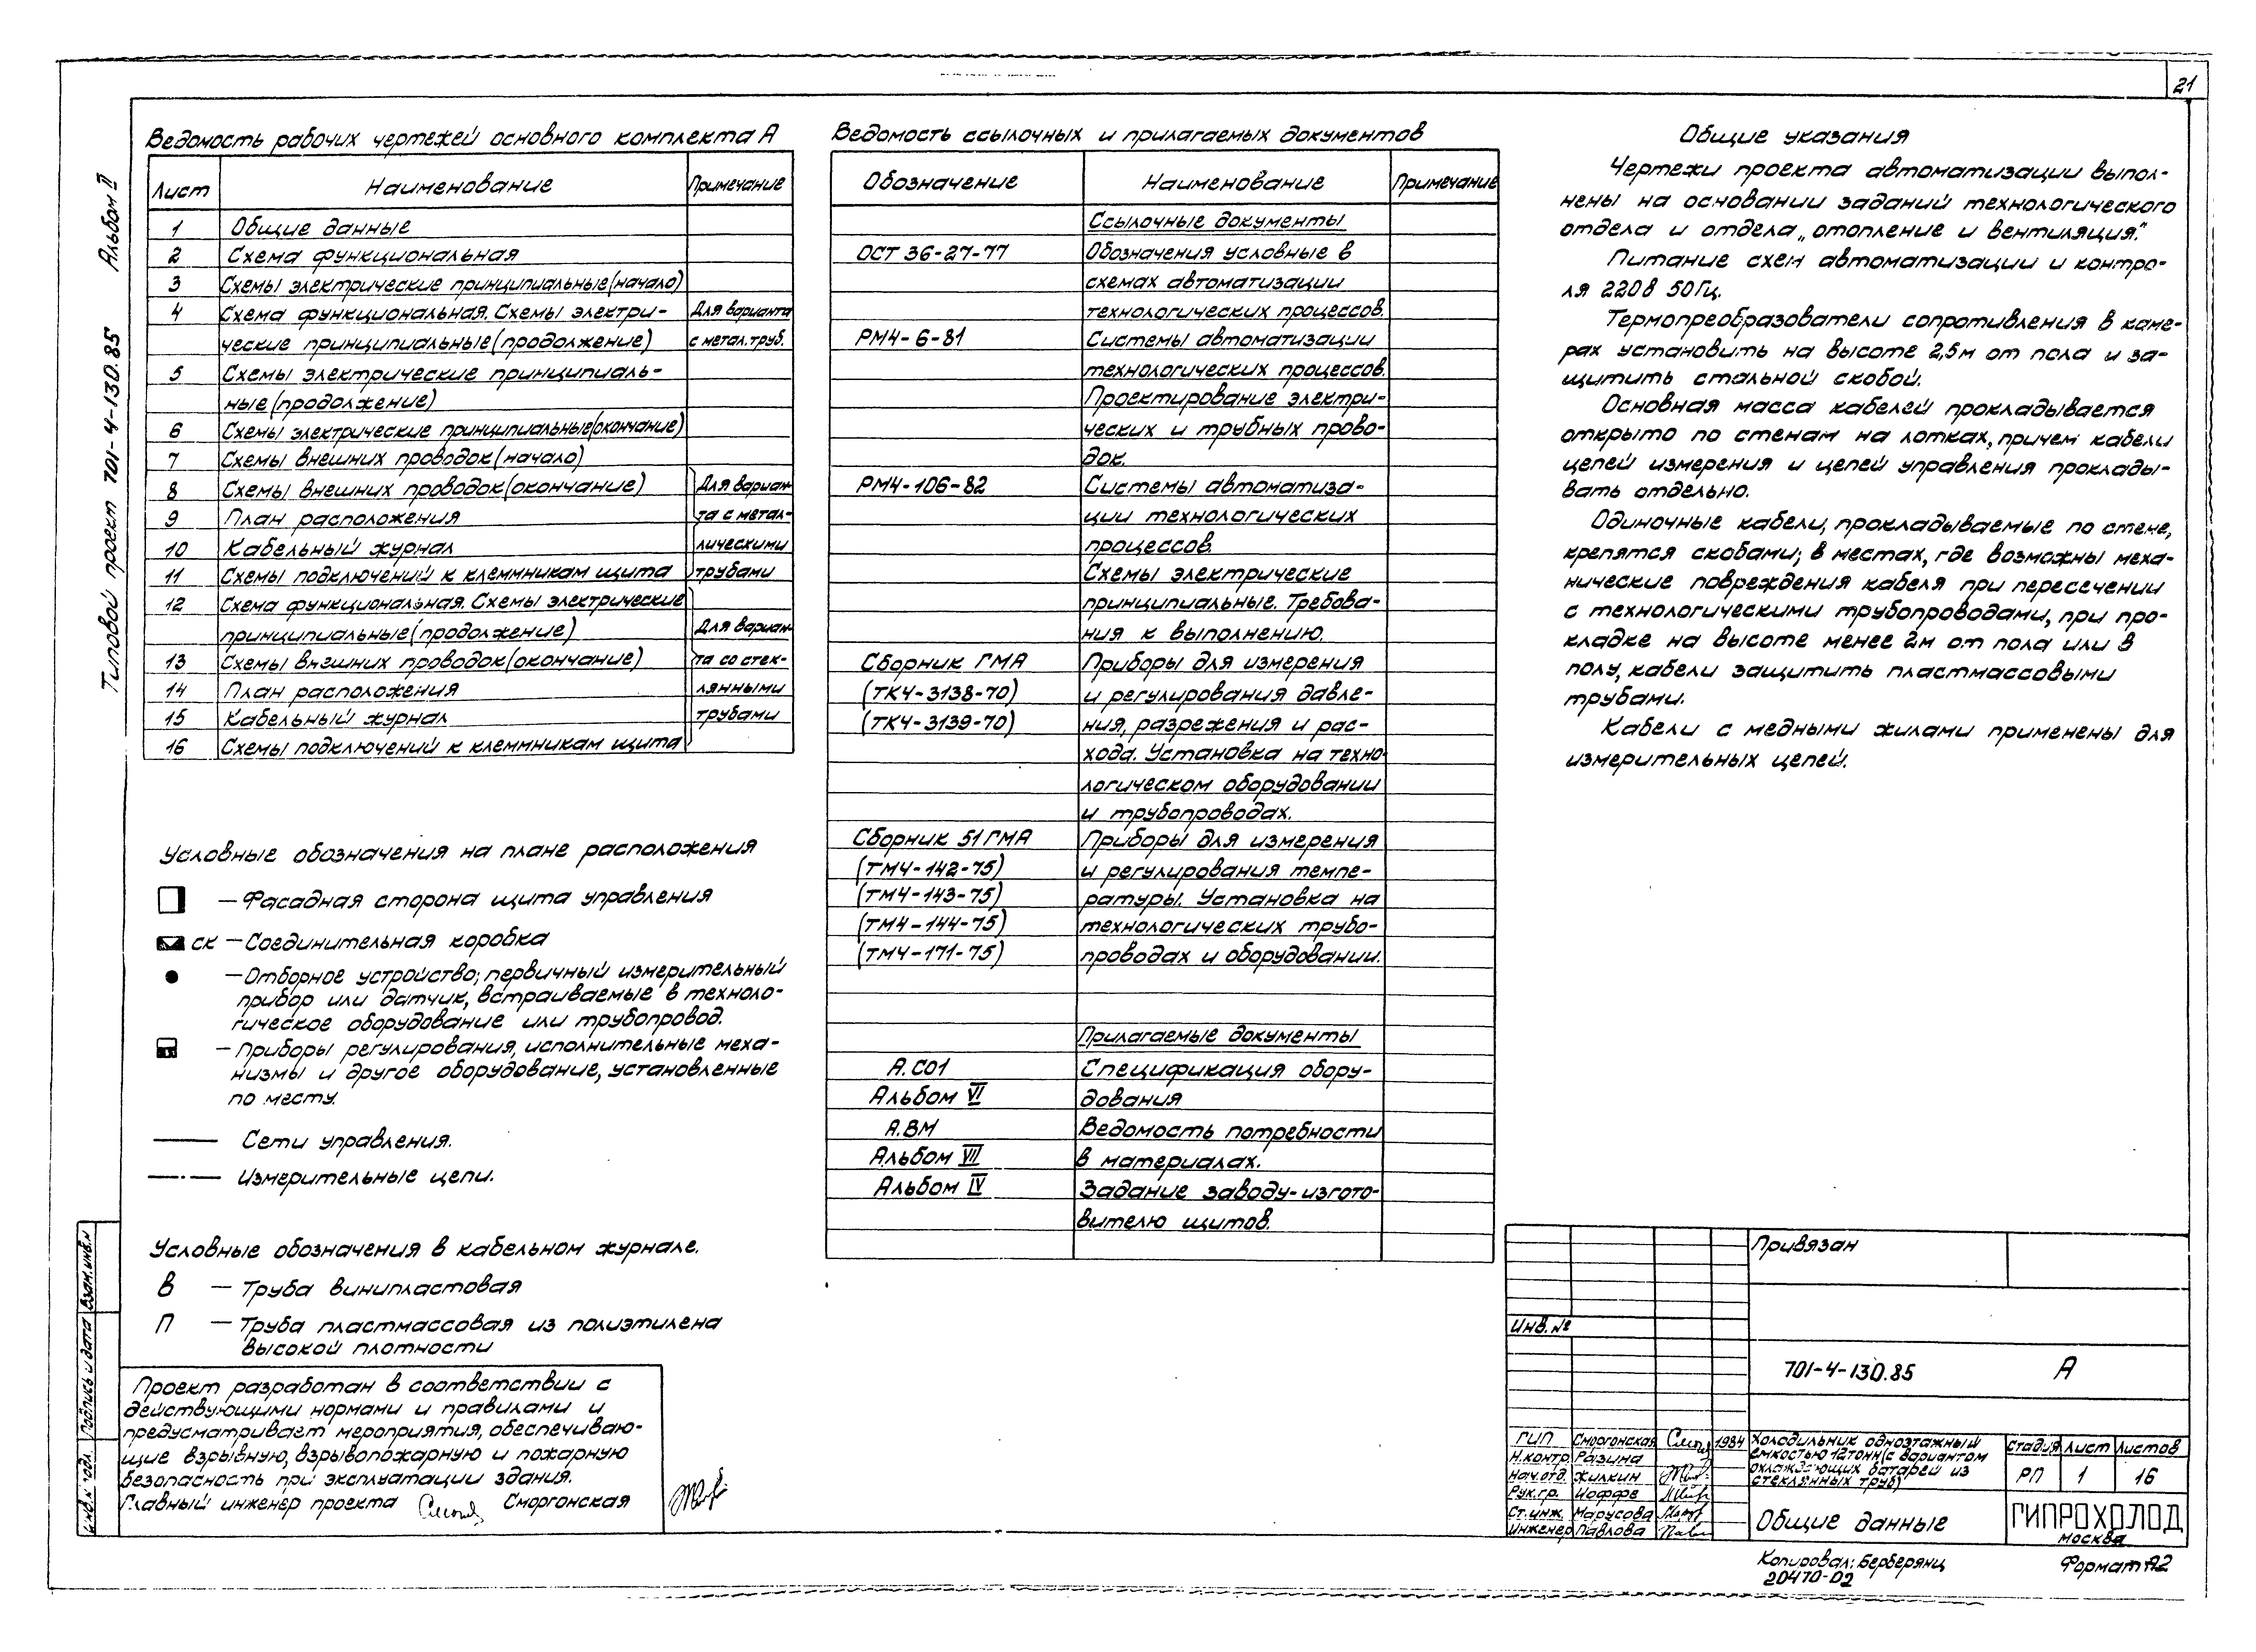 21
Альбом II
Типовой проект 701-4-130.85
Ведомость рабочих чертежей основного комплекта А
Лист Наименование Примечание
1 Общие данные
2 Схема функциональная
3 Схемы электрические принципиальные(начало)
4 Схема функциональная. Схемы электри- Для варианта
ческие принципиальные(продолжение) с метал.труб.
5 Схемы электрические принципиаль-
ные(продолжение)
6 Схемы электрические принципиальные(окончание)
7 Схемы внешних проводок(начало)
8 Схемы внешних проводок(окончание) Для вариан-
9 План расположения та с метал-
10 Кабельный журнал лическими
11 Схемы подключений к клеммникам щита трубами
12 Схема функциональная. Схемы электрические
принципиальные(продолжение) Для вариан-
13 Схемы внешних проводок(окончание) та со стек-
14 План расположения лянными
15 Кабельный журнал трубами
16 Схемы подключений к клеммникам щита
Условные обозначения на плане расположения
— Фасадная сторона щита управления
СК — Соединительная коробка
— Отборное устройство; первичный измерительный
прибор или датчик, встраиваемые в техноло-
гическое оборудование или трубопровод.
— Приборы регулирования, исполнительные меха-
низмы и другое оборудование, установленные
по месту.
Сети управления.
Измерительные цепи.
Условные обозначения в кабельном журнале.
В — Труба винипластовая
П — Труба пластмассовая из полиэтилена
высокой плотности
Проект разработан в соответствии с
действующими нормами и правилами и
предусматривает мероприятия, обеспечиваю-
щие взрывную, взрывопожарную и пожарную
безопасность при эксплуатации здания.
Главный инженер проекта Сморгонская
Взам.инв.N
Подпись и дата
Инв.N подл.
Ведомость ссылочных и прилагаемых документов
Обозначение Наименование Примечание
Ссылочные документы
ОСТ 36-27-77 Обозначения условные в
схемах автоматизации
технологических процессов.
РМ4-6-81 Системы автоматизации
технологических процессов.
Проектирование электри-
ческих и трубных прово-
док.
РМ4-106-82 Системы автоматиза-
ции технологических
процессов.
Схемы электрические
принципиальные. Требова-
ния к выполнению.
Сборник ГМА Приборы для измерения
(ТК4-3138-70) и регулирования давле-
(ТК4-3139-70) ния, разрежения и рас-
хода. Установка на техно-
логическом оборудовании
и трубопроводах.
Сборник 51 ГМА Приборы для измерения
(ТМ4-142-75) и регулирования темпе-
(ТМ4-143-75) ратуры. Установка на
(ТМ4-144-75) технологических трубо-
(ТМ4-171-75) проводах и оборудовании.
Прилагаемые документы
А.СО1 Спецификация обору-
Альбом VI дования
А.ВМ Ведомость потребности
Альбом VII в материалах.
Альбом IV Задание заводу-изгото-
вителю щитов.
Общие указания
Чертежи проекта автоматизации выпол-
нены на основании заданий технологического
отдела и отдела „отопление и вентиляция."
Питание схем автоматизации и контро-
ля 220В 50Гц.
Термопреобразователи сопротивления в каме-
рах установить на высоте 2,5м от пола и за-
щитить стальной скобой.
Основная масса кабелей прокладывается
открыто по стенам на лотках, причем кабели
цепей измерения и цепей управления проклады-
вать отдельно.
Одиночные кабели, прокладываемые по стене,
крепятся скобами; в местах, где возможны меха-
нические повреждения кабеля при пересечении
с технологическими трубопроводами, при про-
кладке на высоте менее 2м от пола или в
полу, кабели защитить пластмассовыми
трубами.
Кабели с медными жилами применены для
измерительных цепей.
Привязан
Инв.№
701-4-130.85 А
ГИП Сморгонская 1984
Н.контр. Разина
Нач.отд. Жилкин
Рук.гр. Иоффе
Ст.инж. Марусова
Инженер Павлова
Холодильник одноэтажный
емкостью 12тонн(с вариантом
охлаждающих батарей из
стеклянных труб)
Стадия Лист Листов
РП 1 16
Общие данные
ГИПРОХОЛОД
МОСКВА
Копировал: Берберянц
20470-02
Формат А2